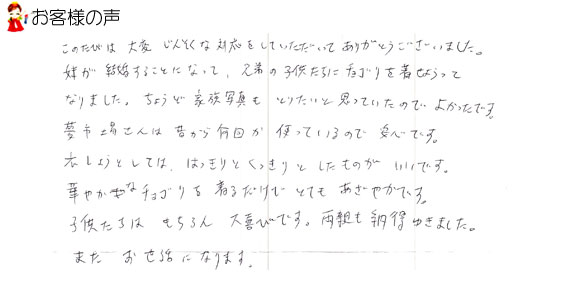 お客様の声
このたびは 大変 じんそくな対応をしていただいて ありがとうございました。
妹が 結婚することになって、兄弟の子供たちに チョゴリを着せようって
なりました。ちょうど 家族写真も とりたいと思っていたので よかったです。
夢市場さんは 昔から何回か 使っているので 安心です。
衣しょうとしては、はっきりと くっきりと したものが いいです。
華やかな チョゴリを 着るだけで とても あざやかです。
子供たちは もちろん 大喜びです。両親も 納得 ゆきました。
また お世話になります。